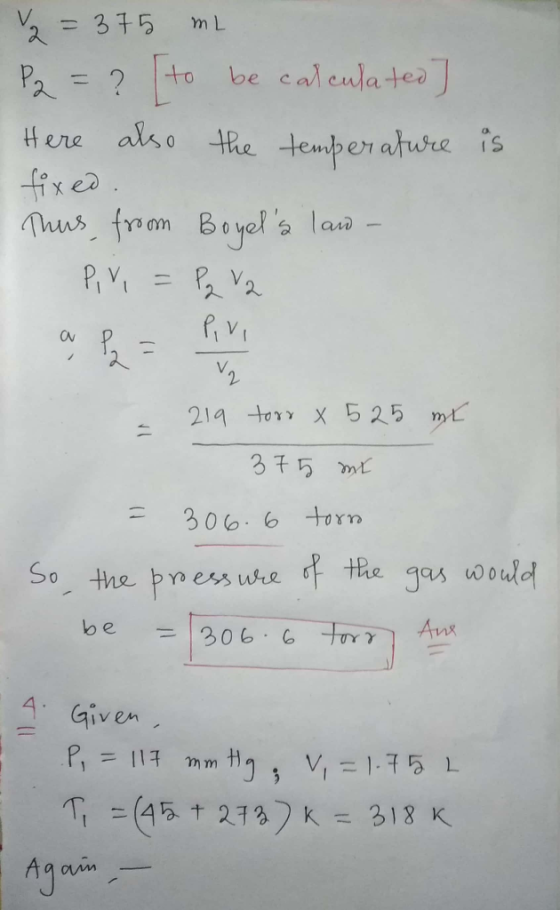 V₂ = 375 mL
P₂ = ? [to be calculated]
Here also the temperature is
fixed.
Thus, from Boyel's law –
P₁V₁ = P₂V₂
a, P₂ = P₁V₁ / V₂
= 219 torr × 525 mL / 375 mL
= 306.6 torr
So, the pressure of the gas would
be = 306.6 torr Ans
4. Given,
P₁ = 117 mmHg ; V₁ = 1.75 L
T₁ = (45 + 273) K = 318 K
Again, —